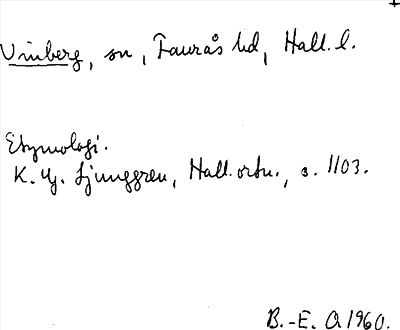 Vinberg, sn, Faurås hd, Hall. l.
Etymologi.
K. G. Ljunggren, Hall. ortn., s. 1103.
B.-E. O 1960.